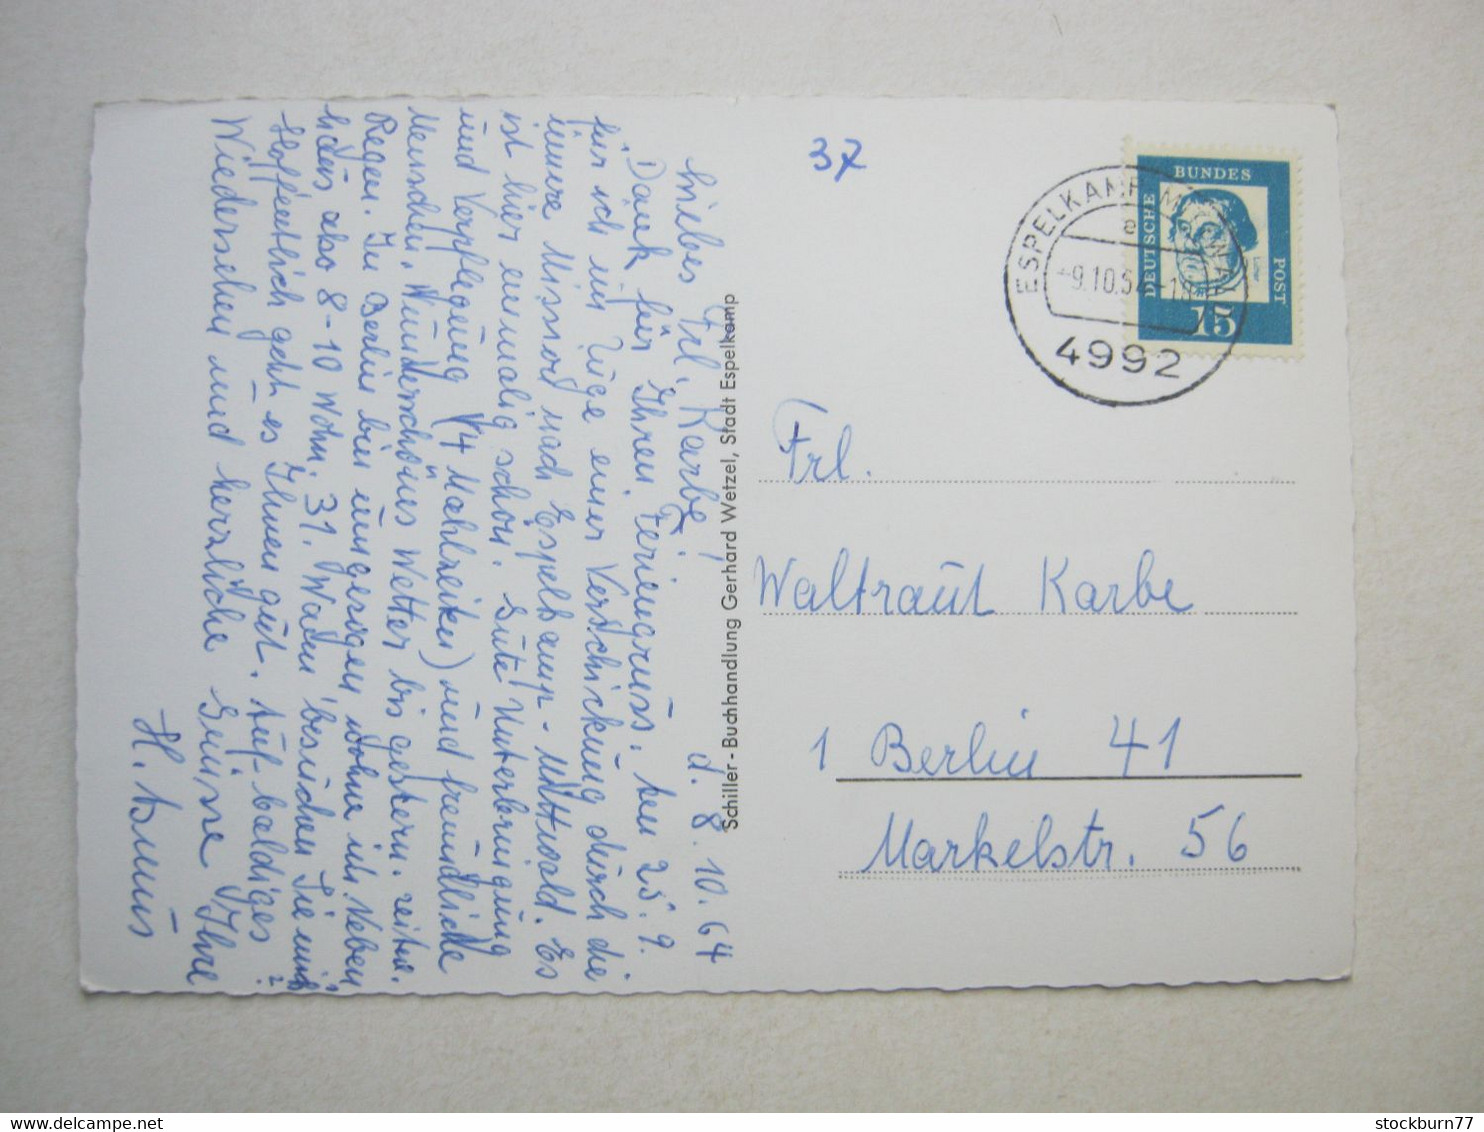 37
BUNDES
DEUTSCHE
POST
15
Luther
ESPELKAMP-MITTWALD
a
-9.10.64-18
4992
Liebes Frl. Karbe!
d. 8.10.64
Dank für Ihren Feriengruss. Am 25.9.
für ich im Zuge einer Verschickung durch die
Innere Mission nach Espelkamp-Mittwald. Es
ist hier einmalig schön. Gute Unterbringung
und Verpflegung (4 Mahlzeiten) und freundliche
Menschen. Wunderschönes Wetter bis gestern. zeitw.
Regen. In Berlin bin umgezogen wohne ich. Neben
also 8-10 Wohn. 31. Wann besuchen Sie mich?
Hoffentlich geht es Ihnen gut. Auf baldiges
Wiedersehen und herzliche Grüsse Ihre
H.
Schiller-Buchhandlung Gerhard Wetzel, Stadt Espelkamp
Frl.
Waltraut Karbe
1 Berlin 41
Markelstr. 56
stockburn77